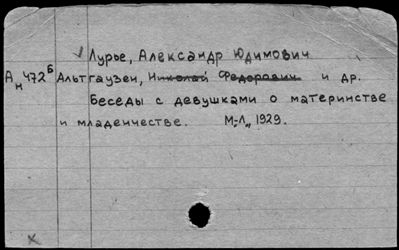 Лурье, Александр Юдимович
Ан 472б Альтгаузен, Николай Федорович и др.
Беседы с девушками о материнстве
и младенчестве. М.-Л., 1929.